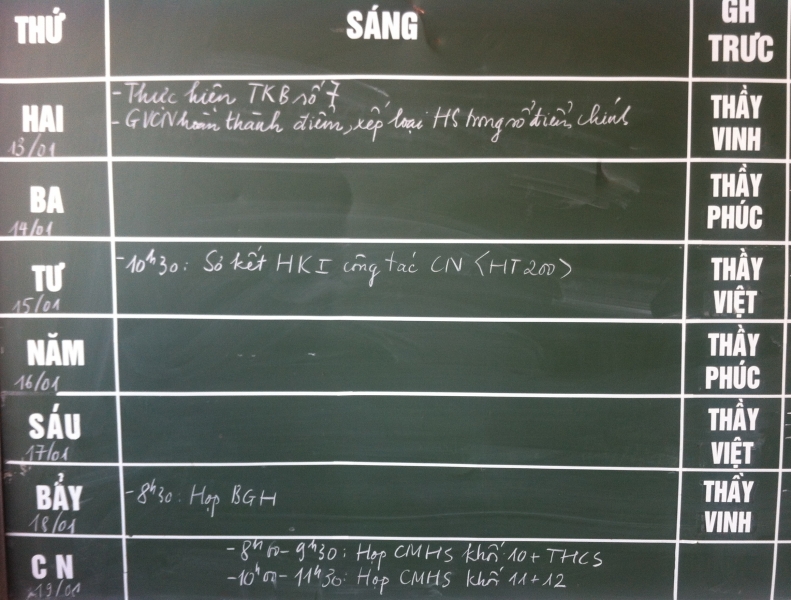 THỨ SÁNG GH
TRƯC
- Thực hiện TKB số 7
HAI - GVCN hoàn thành điểm, xếp loại HS trong sổ điểm chính THẦY
13/01 VINH
BA THẦY
14/01 PHÚC
- 10h30: Sơ kết HKI công tác CN <HT 200>
TƯ THẦY
15/01 VIỆT
NĂM THẦY
16/01 PHÚC
SÁU THẦY
17/01 VIỆT
BẢY - 8h30: Họp BGH THẦY
18/01 VINH
- 8h00 - 9h30: Họp CMHS khối 10 + THCS
C N - 10h00 - 11h30: Họp CMHS khối 11 + 12
19/01